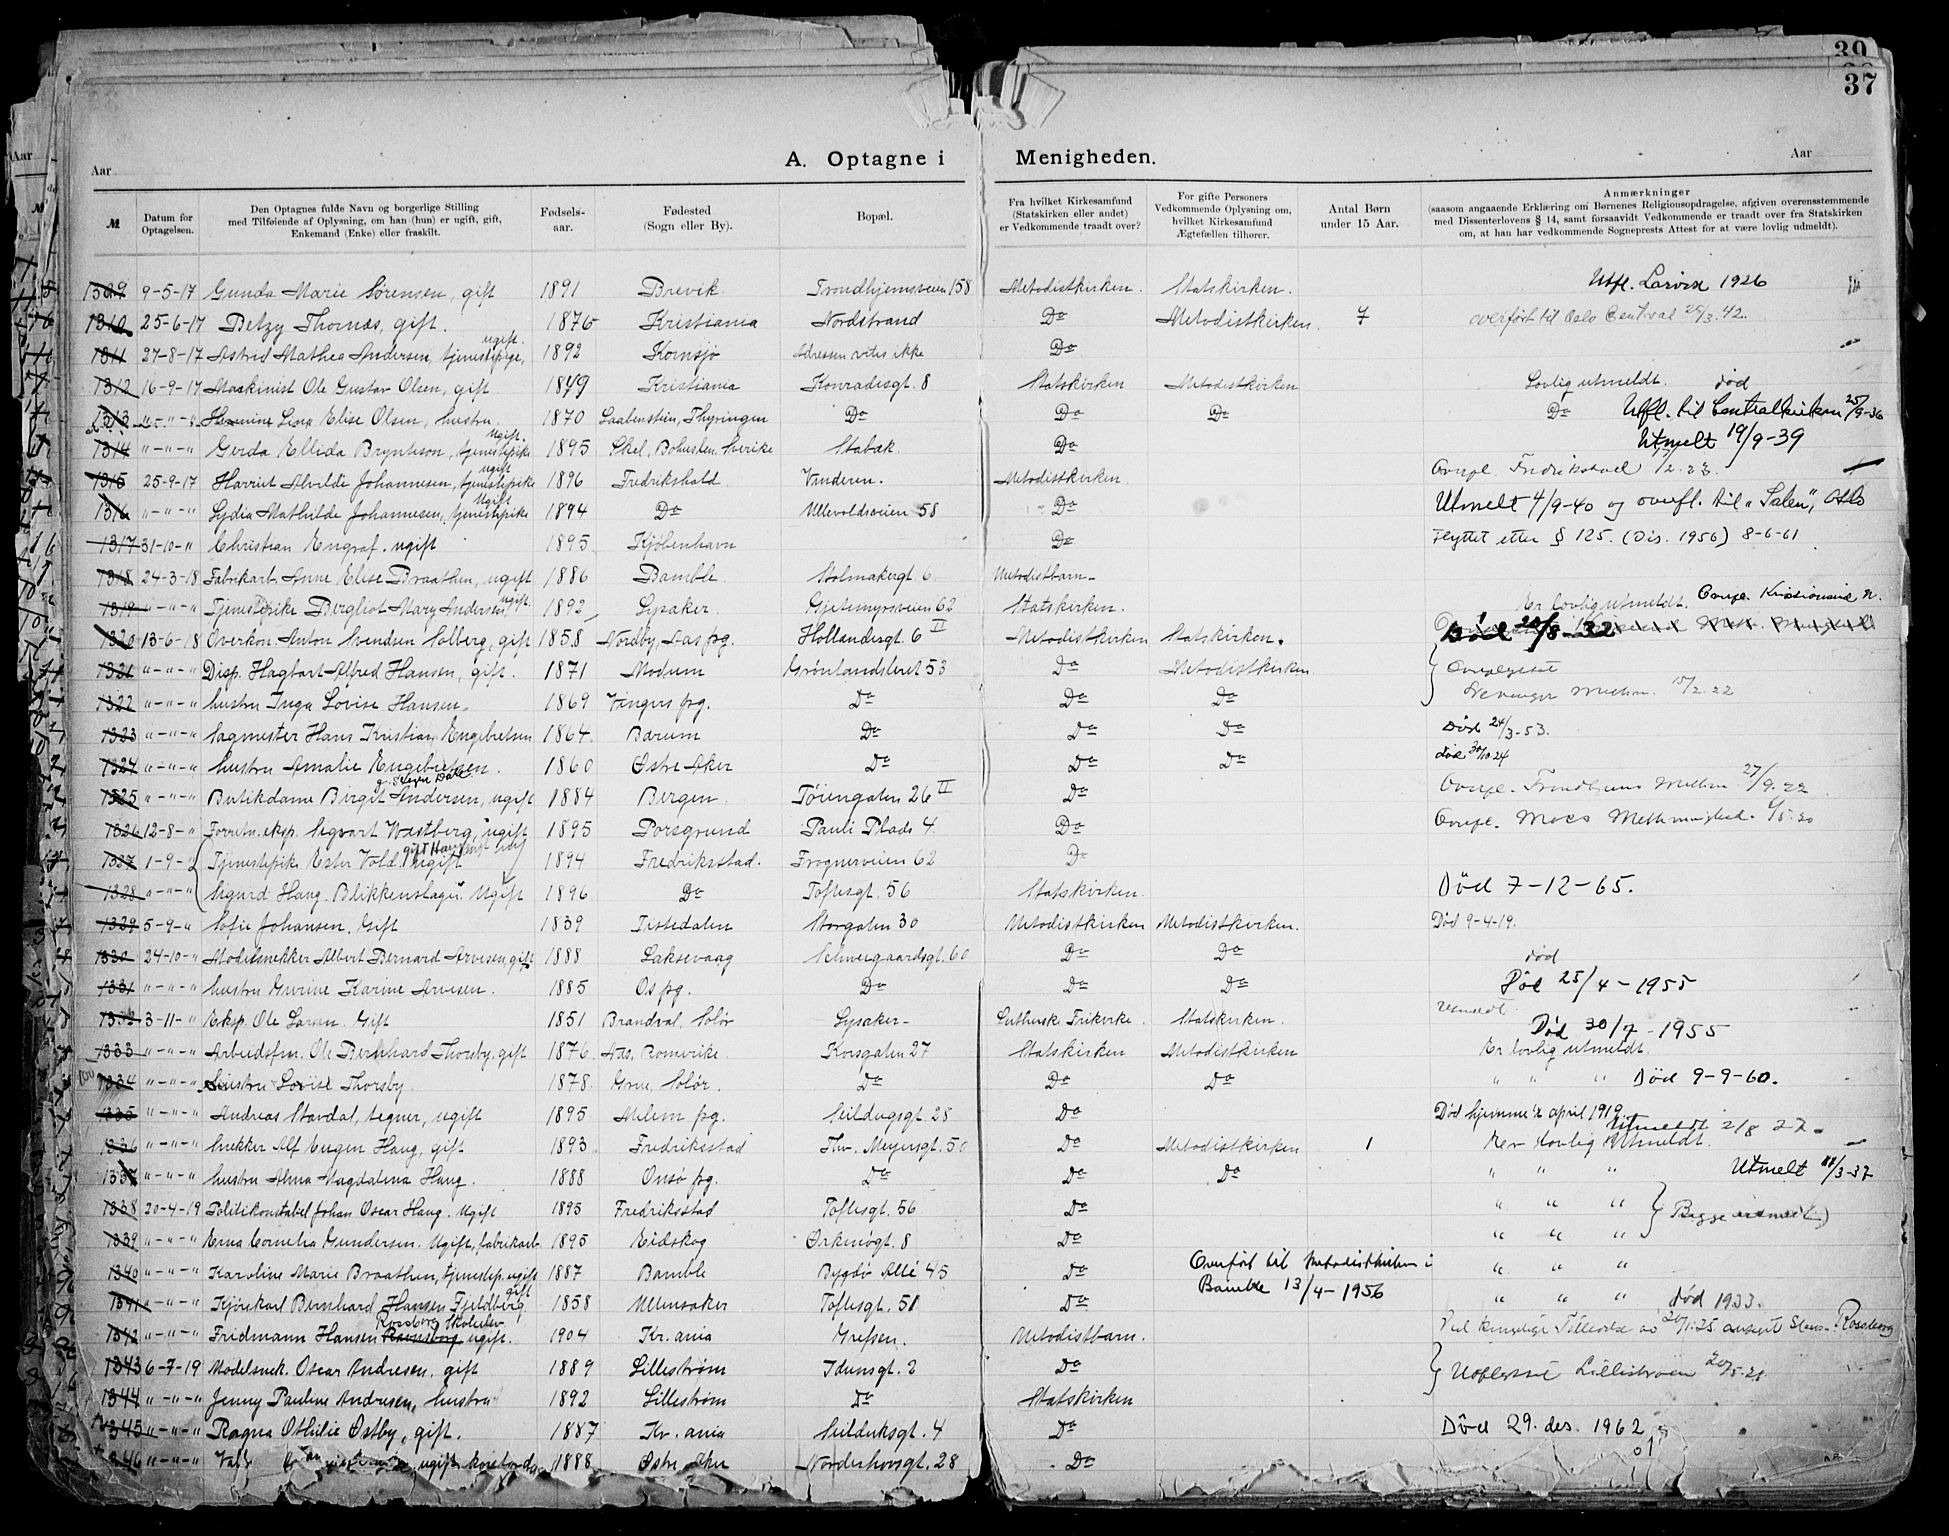 39
37
Aar
A. Optagne i Menigheden.
Aar
Aar
№
Datum for Optagelsen.
Den Optagnes fulde Navn og borgerlige Stilling med Tilføiende af Oplysning, om han (hun) er ugift, gift, Enkemand (Enke) eller fraskilt.
Fødsels-aar.
Fødested (Sogn eller By).
Bopæl.
Fra hvilket Kirkesamfund (Statskirken eller andet) er Vedkommende traadt over?
For gifte Personers Vedkommende Oplysning om, hvilket Kirkesamfund Ægtefællen tilhører.
Antal Børn under 15 Aar.
Anmærkninger (saasom angaaende Erklæring om Børnenes Religionsopdragelse, afgiven overensstemmende med Dissenterlovens § 14, samt forsaavidt Vedkommende er traadt over fra Statskirken om, at han har vedkommende Sogneprests Attest for at være lovlig udmeldt).
1309 9-5-17 Gunda Marie Sørensen, gift 1891 Brevik Trondhjemsveien 158 Metodistkirken. Statskirken. Utfl. Larvik 1926
1310 25-6-17 Betzy Thomas, gift. 1876 Kristiania Nordstrand Do Metodistkirken. 7 overført til Oslo Central 25/3.42.
1311 27-8-17 Astrid Mathea Andersen, tjenestepige, ugift. 1892 Kornsjø Adressen vites ikke Do
1312 16-9-17 Maskinist Ole Gustav Olsen, gift 1849 Kristiania Konradisgt. 8 Statskirken Metodistkirken Lovlig utmeldt. død
1313 Lina Elise Olsen, hustru 1870 Saabenstein, Thyringen Do Do Do Do Utfl. til Centralkirken 25/9-36
1314 "-"-" Gerda Ellida Brynteson, tjenestepike ugift. 1895 Skel, Bohuslen Sverike Stabæk Do Utmelt 19/9-39
1315 25-9-17 Harriet Alvilde Johannesen, tjenestepike ugift 1896 Fredrikshald Vinderen. Metodistkirken. Fredrikstad
1316 "-"-" Lydia Mathilde Johannesen, tjenestepike Ugift 1894 Do Ullevoldsveien 58 Do Utmelt 4/9-40 og overfl. til "Salen", Oslo
1317 31-10-" Christian Engraf. ugift 1895 Kjøbenhavn Do Flyttet etter § 125. (Dis. 1956) 8-6-61
1318 24-3-18 Fabrikarb. Anne Elise Braathen, ugift 1886 Bamble. Stolmakergt. 6 Metodistbarn
1319 "-"-" Tjenestepike Bergliot Mary Andersen ugift. 1892 Lysaker. Gjetemyrsveien 62 Statskirken. Er lovlig utmeldt.
1320 13-6-18 Overkon. Anton Svendsen Solberg, gift 1858 Nordby, Aas prg. Hollandergt. 6 II Metodistkirken Statskirken. Død 20/8-32
1321 "-"-" Disp. Hagbart Alfred Hansen, gift. 1871 Modum Grønlandsleret 53 Do Metodistkirken.
1322 "-"-" hustru Inga Lovise Hansen. 1869 Vingers prg. Do Do Do 15/2.22
1323 "-"-" Sagmester Hans Kristian Engebretsen 1864 Bærum Do Do Do Død 24/3-53.
1324 "-"-" hustru Amalie Engebretsen. 1860 Østre Aker Do Do Do død 30/10.24
1325 "-"-" Butikdame Birgit Andersen, ugift 1884 Bergen Tøiengaten 26 II Do 27/9.22
1326 12-8-" Forretn. eksp. Sigvart Wastberg, ugift 1895 Porsgrund Pauli Plads 4. Do Moss
1327 1-9-" Tjenestepike Ester Vold, ugift 1894 Fredriksstad. Frognerveien 62 Do
1328 "-"-" Sigurd Haug. Blikkenslager Ugift 1896 Do Toftesgt. 56 Statskirken Død 7-12-65.
1329 5-9-" Sofie Johansen, Gift 1839 Tistedalen Storgaten 30 Metodistkirken Metodistkirken. Død 9-4-19.
1330 24-10-" Modelsnekker Albert Bernard Arvesen, gift 1888 Laksevaag Schweigaardsgt. 60 Do Do død
1331 "-"-" hustru Gurine Karine Arvesen. 1885 Os prg. Do Do Do Død 25/4-1955
1332 3-11-" Eksp. Ole Larsen. Gift 1851 Brandval, Solør Lysaker Lutherske Frikirke. Statskirken. utmeldt
1333 "-"-" Arbeidsfm. Ole Bernhard Thorsby, gift 1876 Nes. Romerike. Korsgaten 27 Statskirken Metodistkirken Død 30/7-1955 Er lovlig utmeldt.
1334 "-"-" hustru Lovise Thorsby. 1878 Grue, Solør. Do Do Do " " " Død 9-9-60.
1335 "-"-" Andreas Stavdal, tegner, ugift 1895 Seilduksgt. 28 Do Død hjemme i april 1919
1336 "-"-" Snekker Alf Eugen Haug, gift 1893 Fredriksstad Thv. Meyersgt. 50 Do Metodistkirken 1 Er lovlig utmeldt. Utmeldt 2/8 27.
1337 "-"-" hustru Alma Magdalena Haug. 1888 Onsø prg. Do Do Do " " " Utmelt 11/3-37
1338 20-4-19 Politikonstabel Johan Oscar Haug. Ugift 1895 Fredriksstad Toftesgt. 56 Do " " " Begge utmeldt
1339 "-"-" Erna Cornelia Gundersen. Ugift, fabrikarb. 1895 Eidskog Ørkenøgt. 8 Do " " "
1340 "-"-" Karoline Marie Braathen, tjenestep. ugift 1887 Bamble Bygdø Allé 45 Do Overført til Metodistkirken i Bamble 13/4-1956 " " "
1341 "-"-" Kjørekarl Bernhard Hansen Fjeldberg. gift 1858 Ullensaker Toftesgt. 51 Do " " " død 1933.
1342 "-"-" Fridmann Hansen Rossberg ugift. 1904 Kr.ania Grefsen. Metodistbarn. Rossberg
1343 6-7-19 Modelsnek. Oscar Andresen, gift 1889 Lillestrøm Idunsgt. 2 Do Utflyttet Lillestrøm
1344 "-"-" Jenny Pauline Andresen, hustru 1892 Lillestrøm Do Statskirken
1345 "-"-" Ragna Othilie Østby, gift. 1887 Kr.ania Seilduksgt. 4 Do Død 29. des. 1962
1346 "-"-" ugift 1888 Østre Aker Norderhovsgt. 28 Do